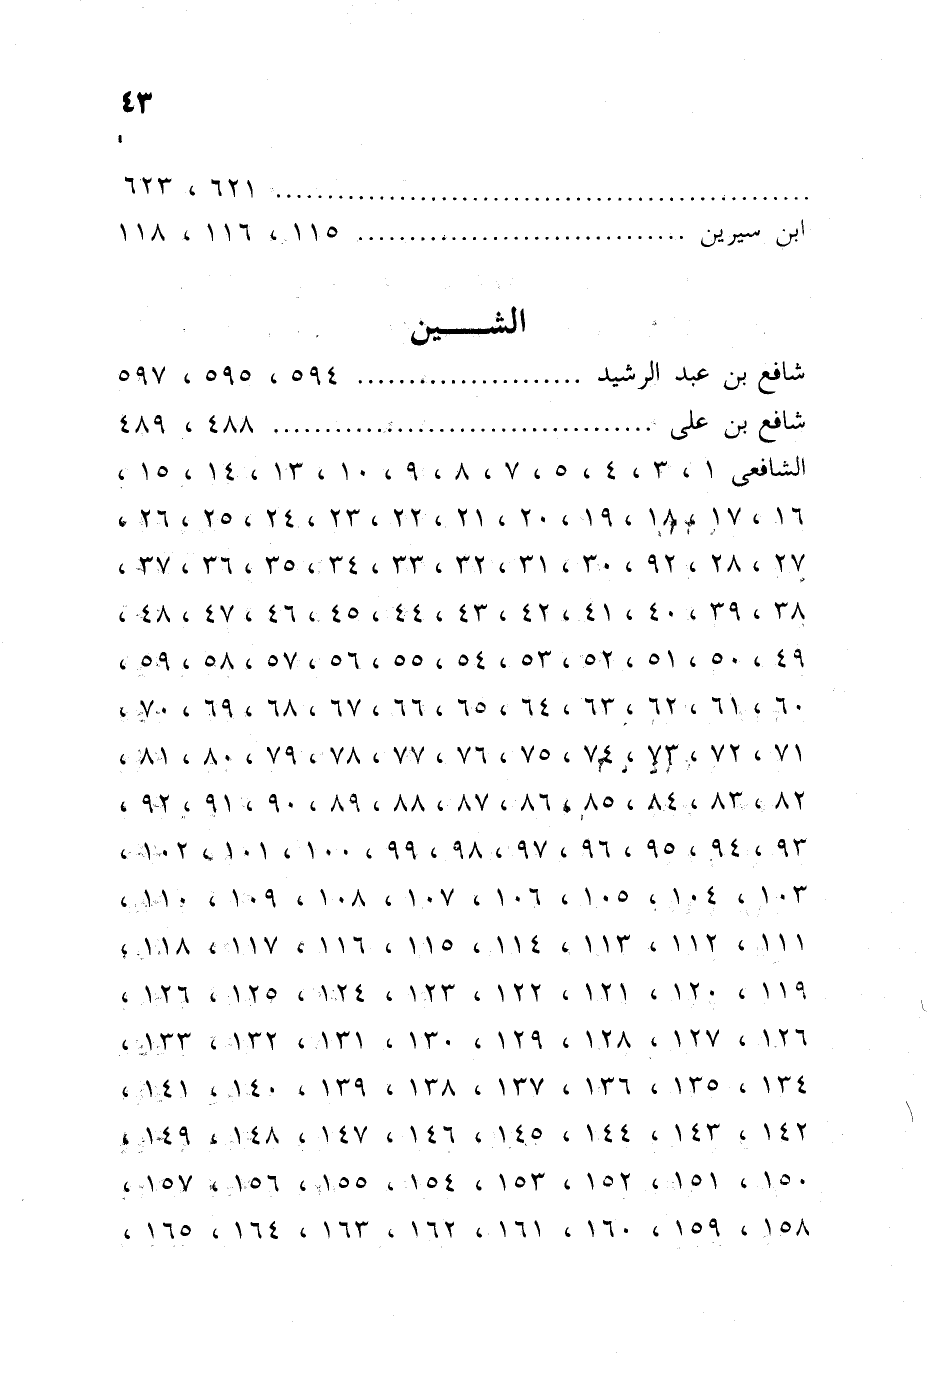 ٤٣
................................................... ٦٢١ ، ٦٢٣
ابن سيرين ................................ ١١٥ ، ١١٦ ، ١١٨
الشــــين
شافع بن عبد الرشيد ...................... ٥٩٤ ، ٥٩٥ ، ٥٩٧
شافع بن على .................................... ٤٨٨ ، ٤٨٩
الشافعى ١ ، ٣ ، ٤ ، ٥ ، ٧ ، ٨ ، ٩ ، ١٠ ، ١٣ ، ١٤ ، ١٥ ،
١٦ ، ١٧ ، ١٨ ، ١٩ ، ٢٠ ، ٢١ ، ٢٢ ، ٢٣ ، ٢٤ ، ٢٥ ، ٢٦ ،
٢٧ ، ٢٨ ، ٩٢ ، ٣٠ ، ٣١ ، ٣٢ ، ٣٣ ، ٣٤ ، ٣٥ ، ٣٦ ، ٣٧ ،
٣٨ ، ٣٩ ، ٤٠ ، ٤١ ، ٤٢ ، ٤٣ ، ٤٤ ، ٤٥ ، ٤٦ ، ٤٧ ، ٤٨ ،
٤٩ ، ٥٠ ، ٥١ ، ٥٢ ، ٥٣ ، ٥٤ ، ٥٥ ، ٥٦ ، ٥٧ ، ٥٨ ، ٥٩ ،
٦٠ ، ٦١ ، ٦٢ ، ٦٣ ، ٦٤ ، ٦٥ ، ٦٦ ، ٦٧ ، ٦٨ ، ٦٩ ، ٧٠ ،
٧١ ، ٧٢ ، ٧٣ ، ٧٤ ، ٧٥ ، ٧٦ ، ٧٧ ، ٧٨ ، ٧٩ ، ٨٠ ، ٨١ ،
٨٢ ، ٨٣ ، ٨٤ ، ٨٥ ، ٨٦ ، ٨٧ ، ٨٨ ، ٨٩ ، ٩٠ ، ٩١ ، ٩٢ ،
٩٣ ، ٩٤ ، ٩٥ ، ٩٦ ، ٩٧ ، ٩٨ ، ٩٩ ، ١٠٠ ، ١٠١ ، ١٠٢ ،
١٠٣ ، ١٠٤ ، ١٠٥ ، ١٠٦ ، ١٠٧ ، ١٠٨ ، ١٠٩ ، ١١٠ ،
١١١ ، ١١٢ ، ١١٣ ، ١١٤ ، ١١٥ ، ١١٦ ، ١١٧ ، ١١٨ ،
١١٩ ، ١٢٠ ، ١٢١ ، ١٢٢ ، ١٢٣ ، ١٢٤ ، ١٢٥ ، ١٢٦ ،
١٢٦ ، ١٢٧ ، ١٢٨ ، ١٢٩ ، ١٣٠ ، ١٣١ ، ١٣٢ ، ١٣٣ ،
١٣٤ ، ١٣٥ ، ١٣٦ ، ١٣٧ ، ١٣٨ ، ١٣٩ ، ١٤٠ ، ١٤١ ،
١٤٢ ، ١٤٣ ، ١٤٤ ، ١٤٥ ، ١٤٦ ، ١٤٧ ، ١٤٨ ، ١٤٩ ،
١٥٠ ، ١٥١ ، ١٥٢ ، ١٥٣ ، ١٥٤ ، ١٥٥ ، ١٥٦ ، ١٥٧ ،
١٥٨ ، ١٥٩ ، ١٦٠ ، ١٦١ ، ١٦٢ ، ١٦٣ ، ١٦٤ ، ١٦٥ ،